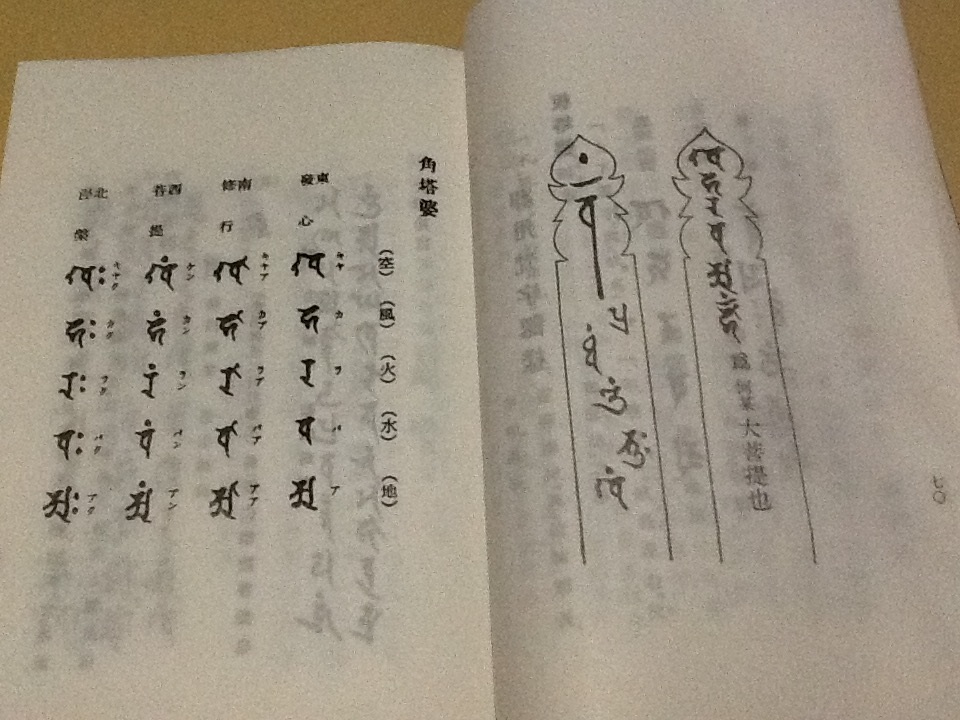 七〇
𑖏𑖮𑖨𑖪𑖀
大菩提也
角塔婆
(空)(風)(火)(水)(地)
東
發心
キャ カ ラ バ ア
𑖏 𑖮 𑖨 𑖪 𑖀
南
修行
キャア カア ラア バア アア
𑖏𑖯 𑖮𑖯 𑖨𑖯 𑖪𑖯 𑖁
西
菩提
ケン カン ラン バン アン
𑖏𑖽 𑖮𑖽 𑖨𑖽 𑖪𑖽 𑖀𑖽
北
涅槃
キャク カク ラク バク アク
𑖏𑖾 𑖮𑖾 𑖨𑖾 𑖪𑖾 𑖀𑖾